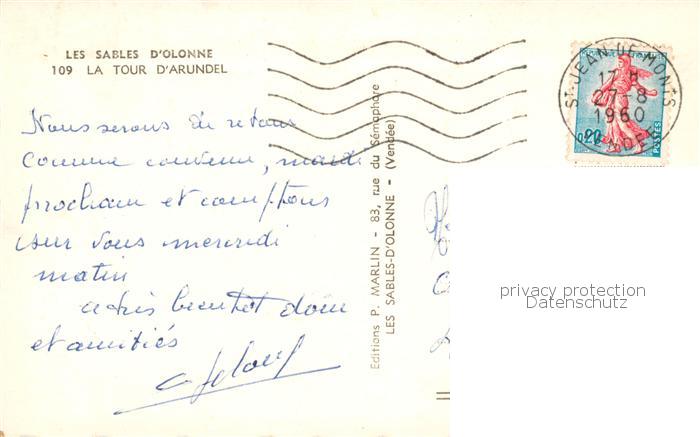 LES SABLES D'OLONNE
109 LA TOUR D'ARUNDEL
Nous serons de retour
comme convenu, mardi
prochain et comptons
sur vous mercredi
matin
bientôt donc
et amitiés
Editions P. MARLIN - 83, rue du Sémaphore
LES SABLES-D'OLONNE - (Vendée)
ST-JEAN-DE-MONTS
17 H
27-8
1960
VENDEE
0,20
POSTES
privacy protection
Datenschutz